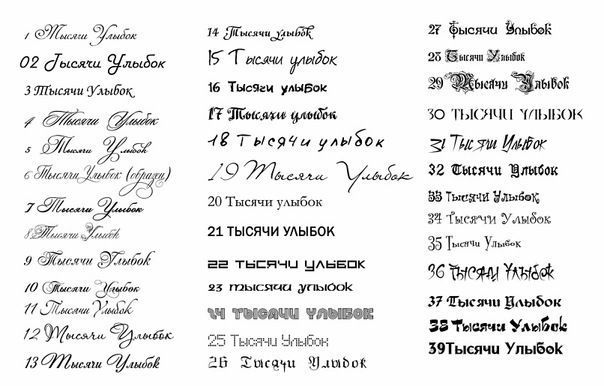 1 Тысячи Улыбок
02 Тысячи Улыбок
3 Тысячи Улыбок
4 Тысячи Улыбок
5 Тысячи Улыбок
6 Тысячи Улыбок (образец)
7 Тысячи Улыбок
8 Тысячи Улыбок
9 Тысячи Улыбок
10 Тысячи Улыбок
11 Тысячи Улыбок
12 Тысячи Улыбок
13 Тысячи Улыбок
14 Тысячи Улыбок
15 Тысячи улыбок
16 Тысячи улыбок
17 Тысячи улыбок
18 Тысячи улыбок
19 Тысячи Улыбок
20 Тысячи улыбок
21 ТЫСЯЧИ УЛЫБОК
22 ТЫСЯЧИ УЛЫБОК
23 тысячи улыбок
24 ТЫСЯЧИ УЛЫБОК
25 Тысячи Улыбок
26 Тысячи Улыбок
27 Тысячи Улыбок
28 Тысячи Улыбок
29 Тысячи Улыбок
30 ТЫСЯЧИ УЛЫБОК
31 Тысячи Улыбок
32 Тысячи Улыбок
33 Тысячи Улыбок
34 Тысячи Улыбок
35 Тысячи Улыбок
36 Тысячи Улыбок
37 Тысячи Улыбок
38 Тысячи Улыбок
39Тысячи Улыбок